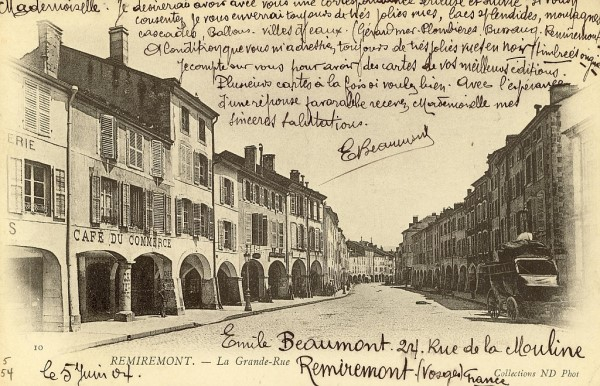 Mademoiselle. Je désirerais avoir avec vous une correspondance sérieuse et suivie. Si vous
consentez je vous enverrai toujours de très jolies vues, lacs splendides, montagnes
cascades, Ballons. villes d'eaux. (Gérardmer-Plombières, Bussang. Remir.)
A condition que vous m'adrettrez, toujours de très jolies vues en noir/timbrées
Je compte sur vous pour avoir des cartes de vos meilleures éditions.
Plusieurs cartes à la fois si voulez bien. Avec l'espérance
d'une réponse favorable recevez Mademoiselle mes
sincères salutations.
E Beaumont
ERIE
S
CAFÉ DU COMMERCE
10
REMIREMONT. — La Grande-Rue
Emile Beaumont. 27, Rue de la Mouline
Remiremont (Vosges) France
Collections ND Phot
5/54
le 5 Juin 04.